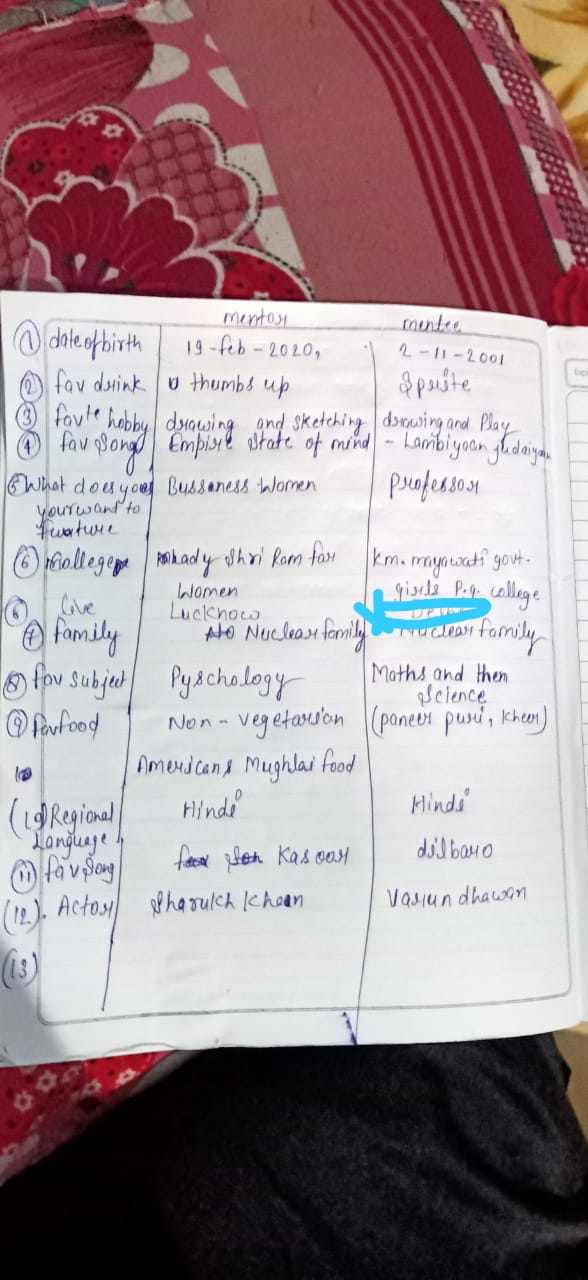 mentor mentee
① date of birth 19-feb-2020, 2-11-2001
② fav drink thumbs up Sprite
③ fav^te hobby drawing and sketching drawing and Play
④ fav song Empire state of mind - Lambiyaan judaiyan
⑤ What does your Bussaness women Professor
your want to
fuature
⑥ College Lady Shri Ram for km. mayawati govt.
Women girls P.g. college
⑥ live Lucknow
⑦ family Nuclear family Nuclear family
⑧ fav subject Pyschology Maths and then
Science
⑨ fav food Non-vegetarian (paneer puri, kheer)
10 American & Mughlai food
(10) Regional Hindi Hindi
Language
⑪ fav song Kasoor dilbaro
(12). Actor Sharukh Khaan Varun dhawan
(13)